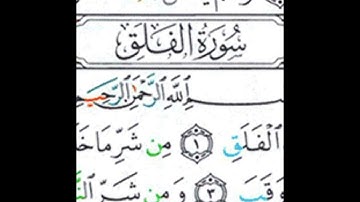 سُورَةُ الفَلَقِ
ـسْمِ اللَّهِ الرَّحْمَٰنِ الرَّحِيمِ
الْفَلَقِ ١ مِن شَرِّ مَا خَـ
وَقَبَ ٣ وَمِن شَرِّ النَّـ